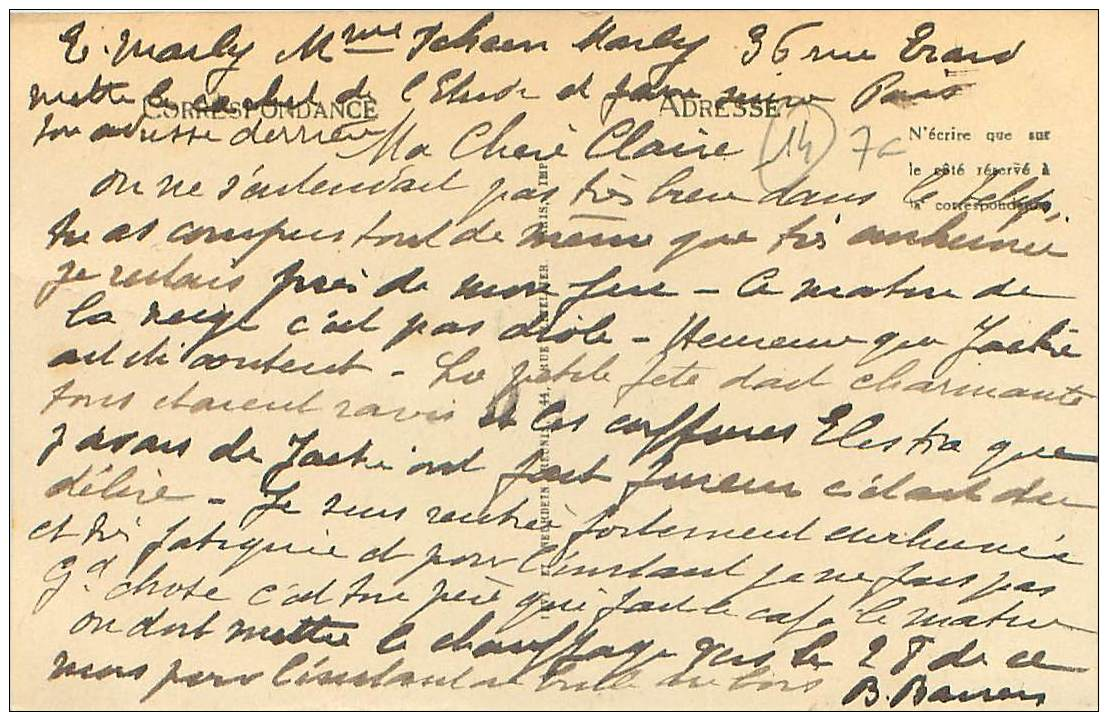 E. Marly Mme Marly 36 rue Erard
mettre le de l'Etude et faire suivre Paris
CORRESPONDANCE ADRESSE
ton adresse derrière
Ma Chère Claire 14 70
N'écrire que sur
le côté réservé à
la correspondance
on ne s'entendait pas très bien dans le
tu as compris tout de même que très enrhumée
je restais près de mon feu - Ce matin de
la neige c'est pas drôle - Heureuse que Jackie
ait été content - La petite fête était charmante
tous étaient ravis et les coiffures que
j'avais de Jackie ont fait fureur c'était du
délire - Je suis rentrée fortement enrhumée
et très fatiguée et pour l'instant je ne fais pas
gd chose c'est ton père qui fait le café le matin
on doit mettre le chauffage vers le 28 de ce
mois pour l'instant on brûle du bois B.